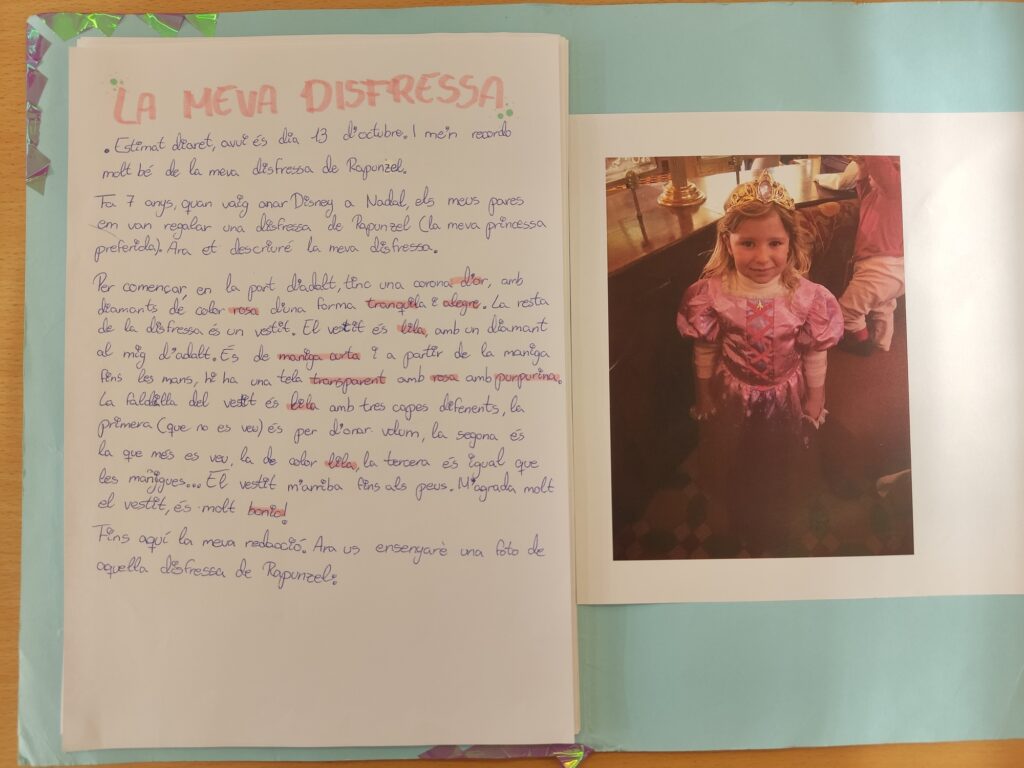 LA MEVA DISFRESSA
. Estimat diaret, avui és dia 13 d'octubre. I me'n recordo
molt bé de la meva disfressa de Rapunzel.
Fa 7 anys, quan vaig anar Disney a Nadal, els meus pares
em van regalar una disfressa de Rapunzel (la meva princessa
preferida). Ara et descriuré la meva disfressa.
Per començar, en la part d'adalt, tinc una corona d'or, amb
diamants de color rosa d'una forma tranquila i alegre. La resta
de la disfressa és un vestit. El vestit és lila, amb un diamant
al mig d'adalt. És de maniga curta i a partir de la maniga
fins les mans, hi ha una tela transparent amb rosa amb purpurina.
La faldilla del vestit és lila amb tres capes diferents, la
primera (que no es veu) és per d'onar volum, la segona és
la que més es veu, la de color lila, la tercera és igual que
les mànigues... El vestit m'arriba fins als peus. M'agrada molt
el vestit, és molt bonic!
Fins aquí la meva redacció. Ara us ensenyaré una foto de
aquella disfressa de Rapunzel: